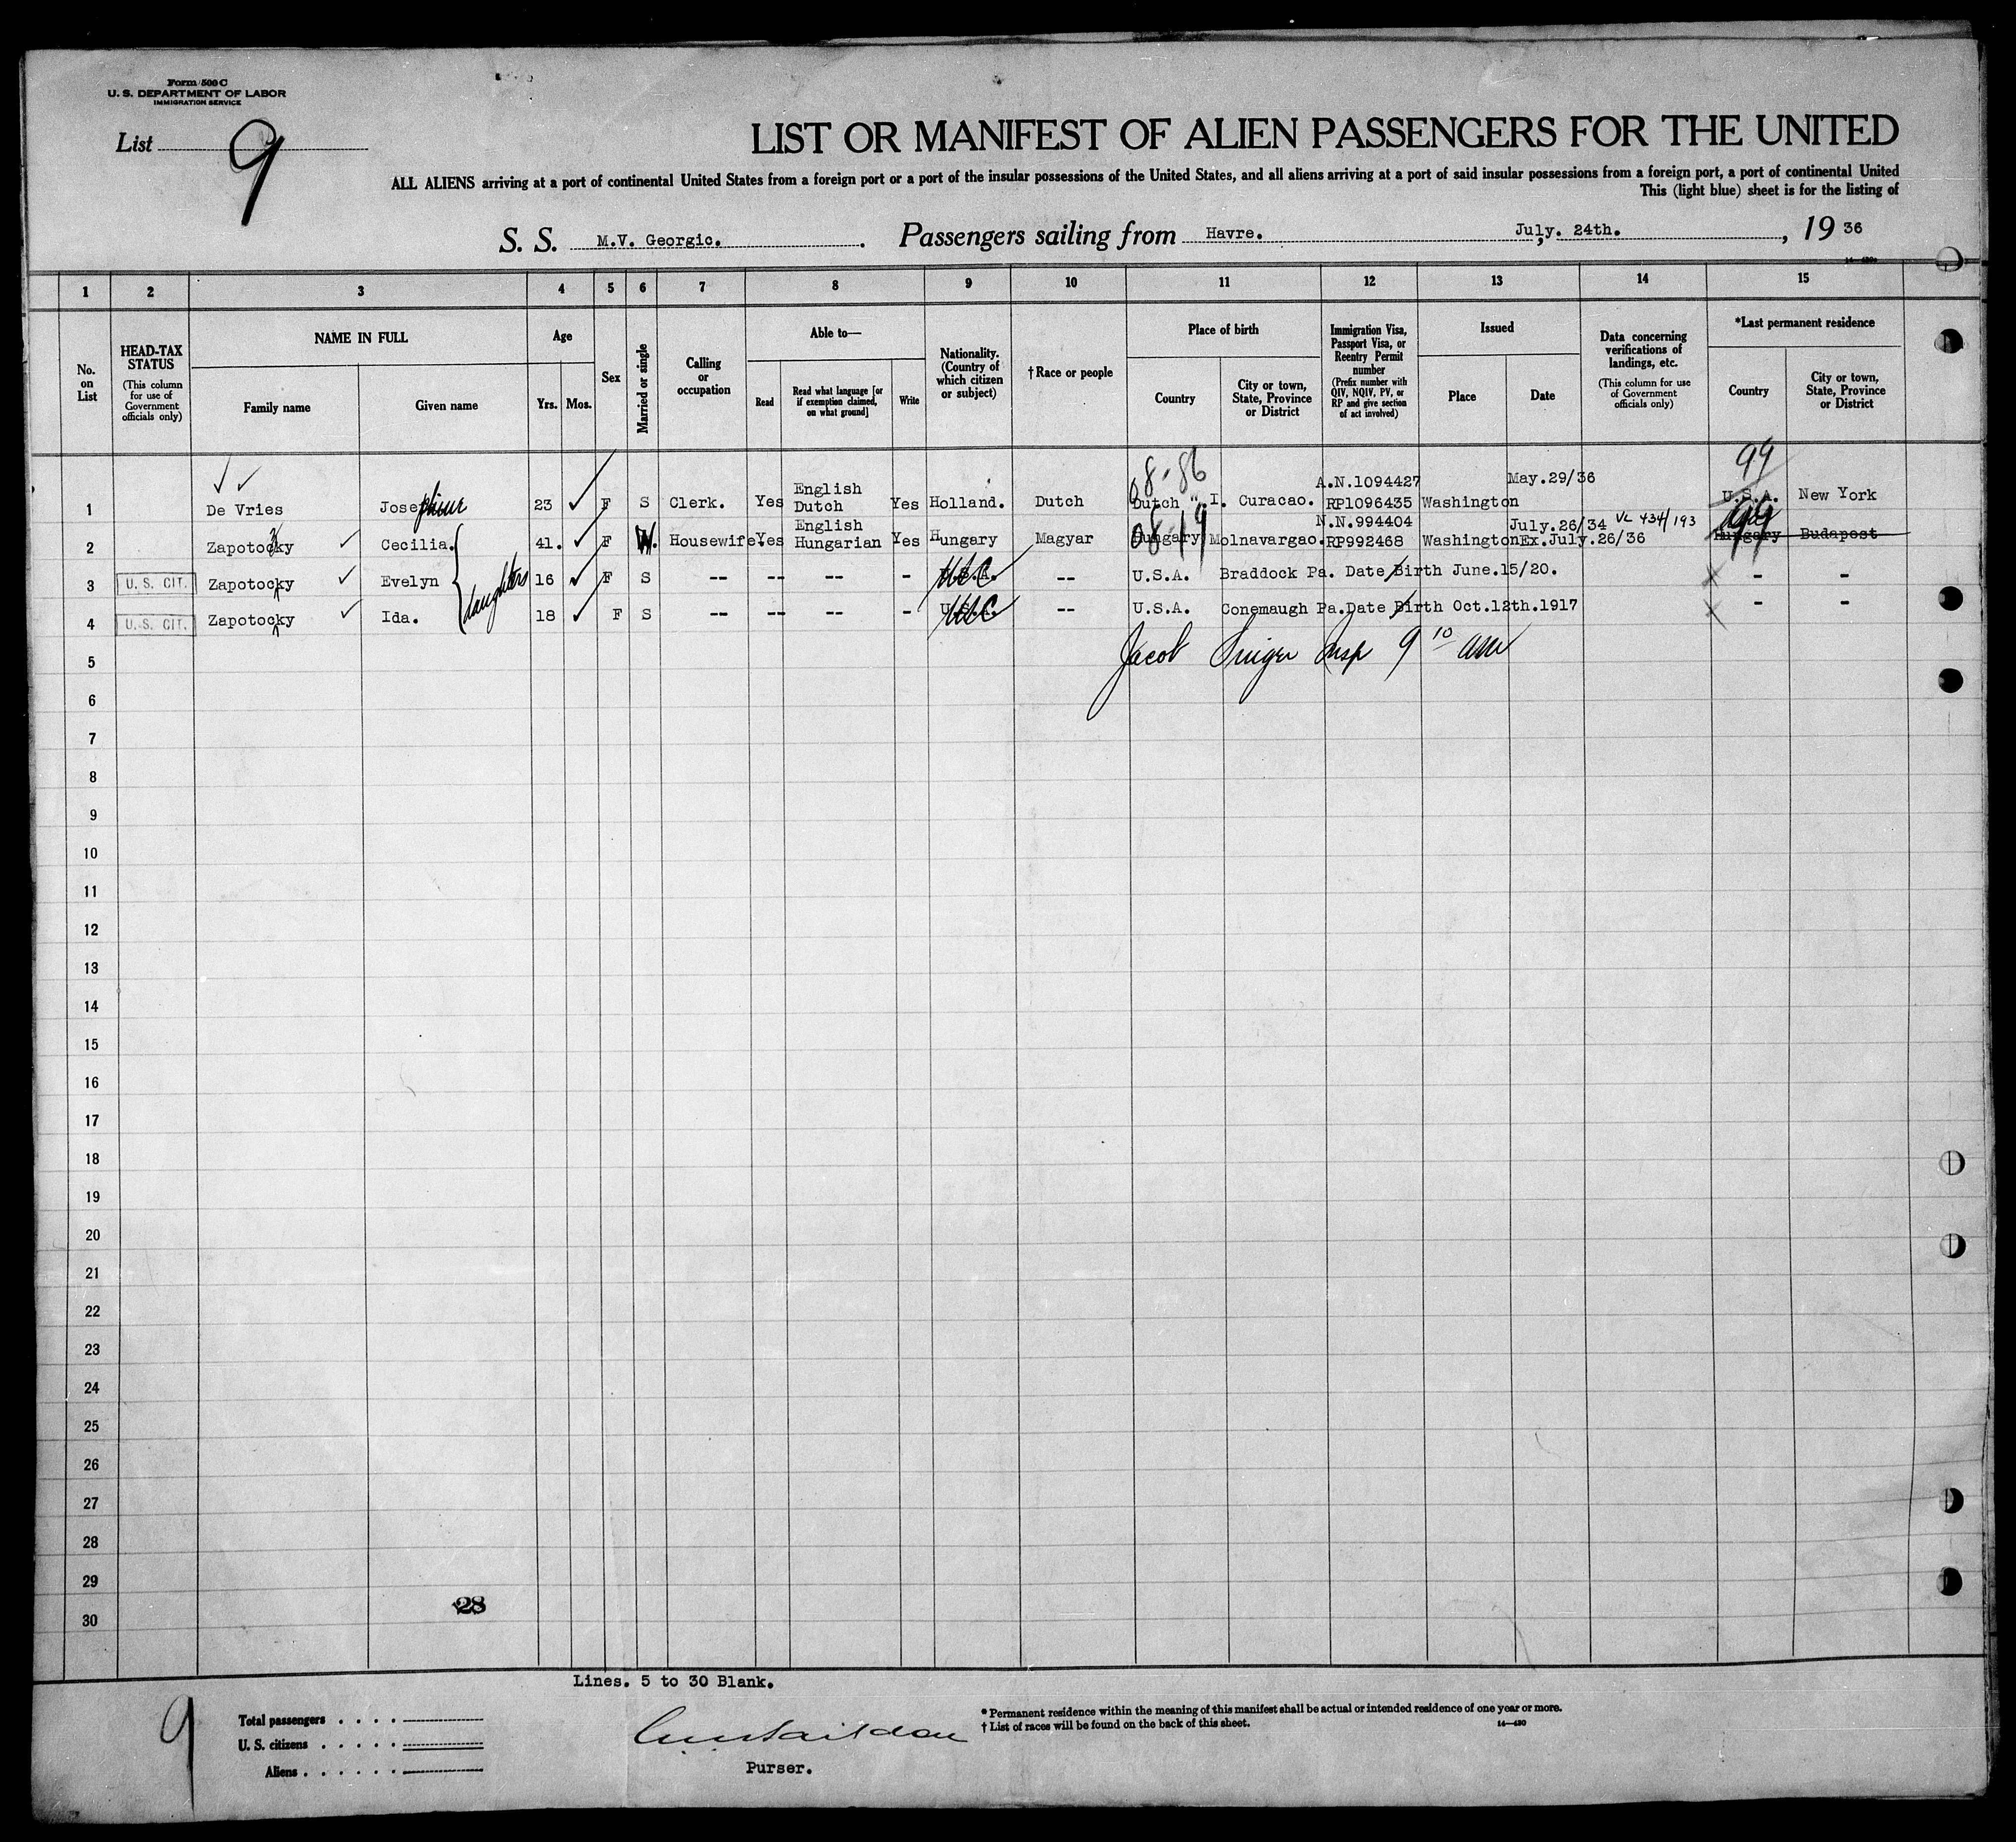 Form 500 C
U. S. DEPARTMENT OF LABOR
IMMIGRATION SERVICE
List 9
LIST OR MANIFEST OF ALIEN PASSENGERS FOR THE UNITED
ALL ALIENS arriving at a port of continental United States from a foreign port or a port of the insular possessions of the United States, and all aliens arriving at a port of said insular possessions from a foreign port, a port of continental United
This (light blue) sheet is for the listing of
S. S. M.V. Georgic. Passengers sailing from Havre. July. 24th. , 19 36
1 2 3 4 5 6 7 8 9 10 11 12 13 14 15
No. on List
HEAD-TAX STATUS (This column for use of Government officials only)
NAME IN FULL Family name Given name
Age Yrs. Mos.
Sex
Married or single
Calling or occupation
Able to— Read Read what language [or if exemption claimed, on what ground] Write
Nationality. (Country of which citizen or subject)
†Race or people
Place of birth Country City or town, State, Province or District
Immigration Visa, Passport Visa, or Reentry Permit number (Prefix number with QIV, NQIV, PV, or RP and give section of act involved)
Issued Place Date
Data concerning verifications of landings, etc. (This column for use of Government officials only)
*Last permanent residence Country City or town, State, Province or District
08-86 99
1 De Vries Josephine 23 F S Clerk. Yes English Dutch Yes Holland. Dutch Dutch W.I. Curacao. A.N.1094427 RP1096435 Washington May.29/36 U.S.A. New York
08-19 99
2 Zapotocky Cecilia. 41. F W. Housewife. Yes English Hungarian Yes Hungary Magyar Hungary Molnavargao. N.N.994404 RP992468 Washington July.26/34 Ex.July.26/36 VL 434/193 Hungary Budapest
3 U. S. CIT. Zapotocky Evelyn 16 F S -- -- -- - U.S.A. USC -- U.S.A. Braddock Pa. Date Birth June.15/20. - -
daughters
4 U. S. CIT. Zapotocky Ida. 18 F S -- -- -- - U.S.A. USC -- U.S.A. Conemaugh Pa. Date Birth Oct.12th.1917 - -
5 Jacob Insp 9 10 am
6
7
8
9
10
11
12
13
14
15
16
17
18
19
20
21
22
23
24
25
26
27
28
29
28
30
Lines. 5 to 30 Blank.
9
Total passengers . . . .
U. S. citizens . . . . .
Aliens . . . . . .
Purser.
* Permanent residence within the meaning of this manifest shall be actual or intended residence of one year or more.
† List of races will be found on the back of this sheet.
14—430